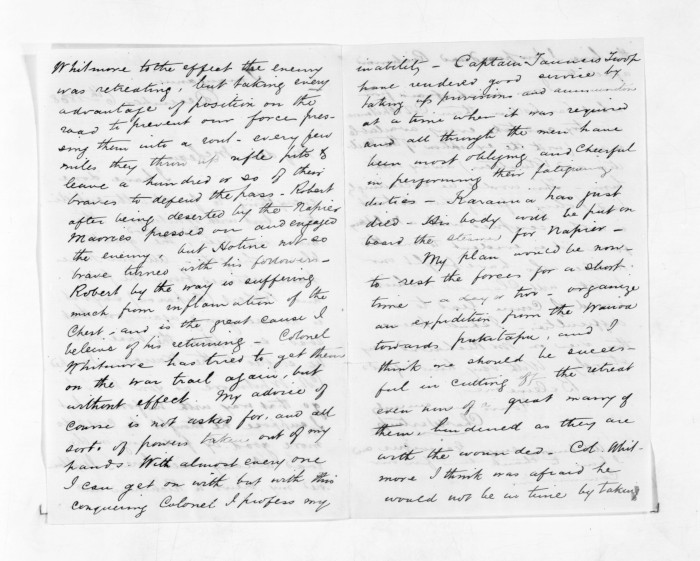 Whitmore to the effect the enemy
was retreating, but taking every
advantage of position on the
road to prevent our force pres-
sing them into a rout - every few
miles they throw up rifle pits &
leave a hundred or so of their
braves to defend the pass - Robert
after being deserted by the Napier
Maories pressed on and engaged
the enemy, but Hotene not so
brave turned with his followers -
Robert by the way is suffering
much from inflamation of the
Chest - and is the great cause I
beleive of his returning - Colonel
Whitmore has tried to get them
on the war trail again, but
without effect. My advice of
course is not asked for, and all
sorts of powers taken out of my
hands. With almost every one
I can get on with but with this
conquering Colonel I profess my
inability - Captain Tanners Troop
have rendered good service by
taking up provisions and ammunition
at a time when it was required
and all through the men have
been most obliging and Cheerful
in performing their fatiguing
duties - Karauria has just
died - His body will be put on
board the steamer for Napier -
My plan would be now -
to rest the forces for a short
time - a day or two - organize
an expedition from the Wairoa
towards pukitapu, and I
think we should be success-
ful in cutting off the retreat
even now of great many of
them, hindered as they are
with the wounded - Col. Whit-
more I think was afraid he
would not be in time by taking